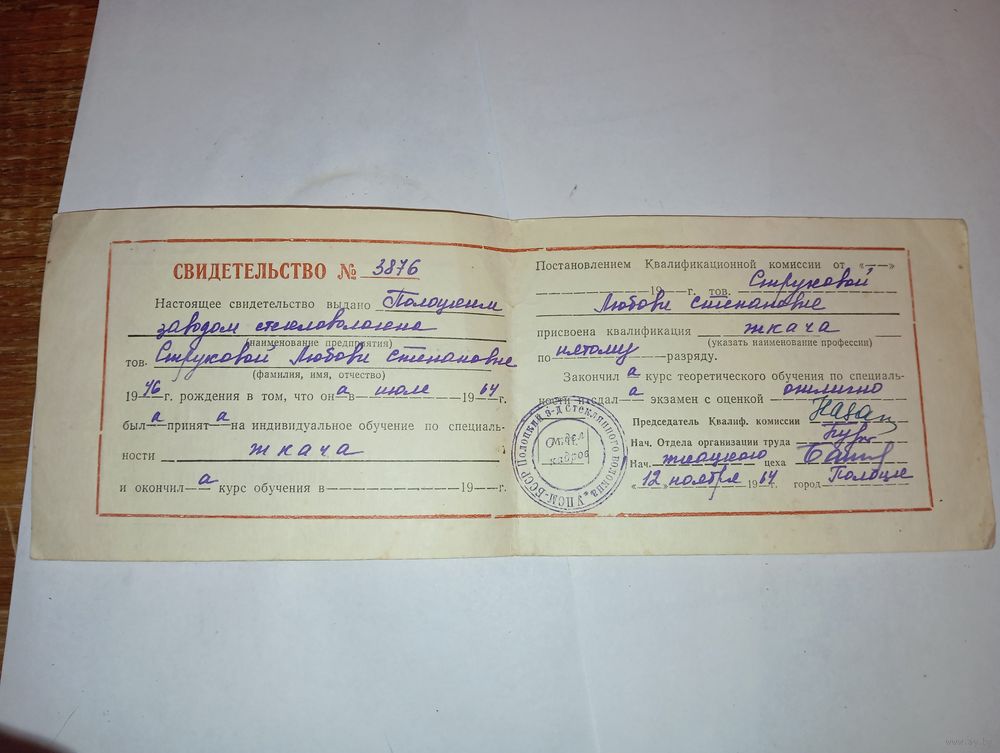 СВИДЕТЕЛЬСТВО № 3876
Настоящее свидетельство выдано Полоцким
заводом стекловолокна
(наименование предприятия)
тов. Струковой Любови Степановне
(фамилия, имя, отчество)
1946 г. рождения в том, что она в июле 1964 г.
была принята на индивидуальное обучение по специаль-
ности ткача
и окончила курс обучения в 19 г.
Постановлением Квалификационной комиссии от « »
19 г. тов. Струковой
Любови Степановне
присвоена квалификация ткача
(указать наименование профессии)
по пятому разряду.
Закончила курс теоретического обучения по специаль-
ности и сдала экзамен с оценкой отлично
Председатель Квалиф. комиссии
Нач. Отдела организации труда
Нач. ткацкого цеха
«12» ноября 1964 г. город Полоцк
УПСМ-БССР Полоцкий з-д стеклянного волокна
Отдел
кадров
М.П.
www.ay.by